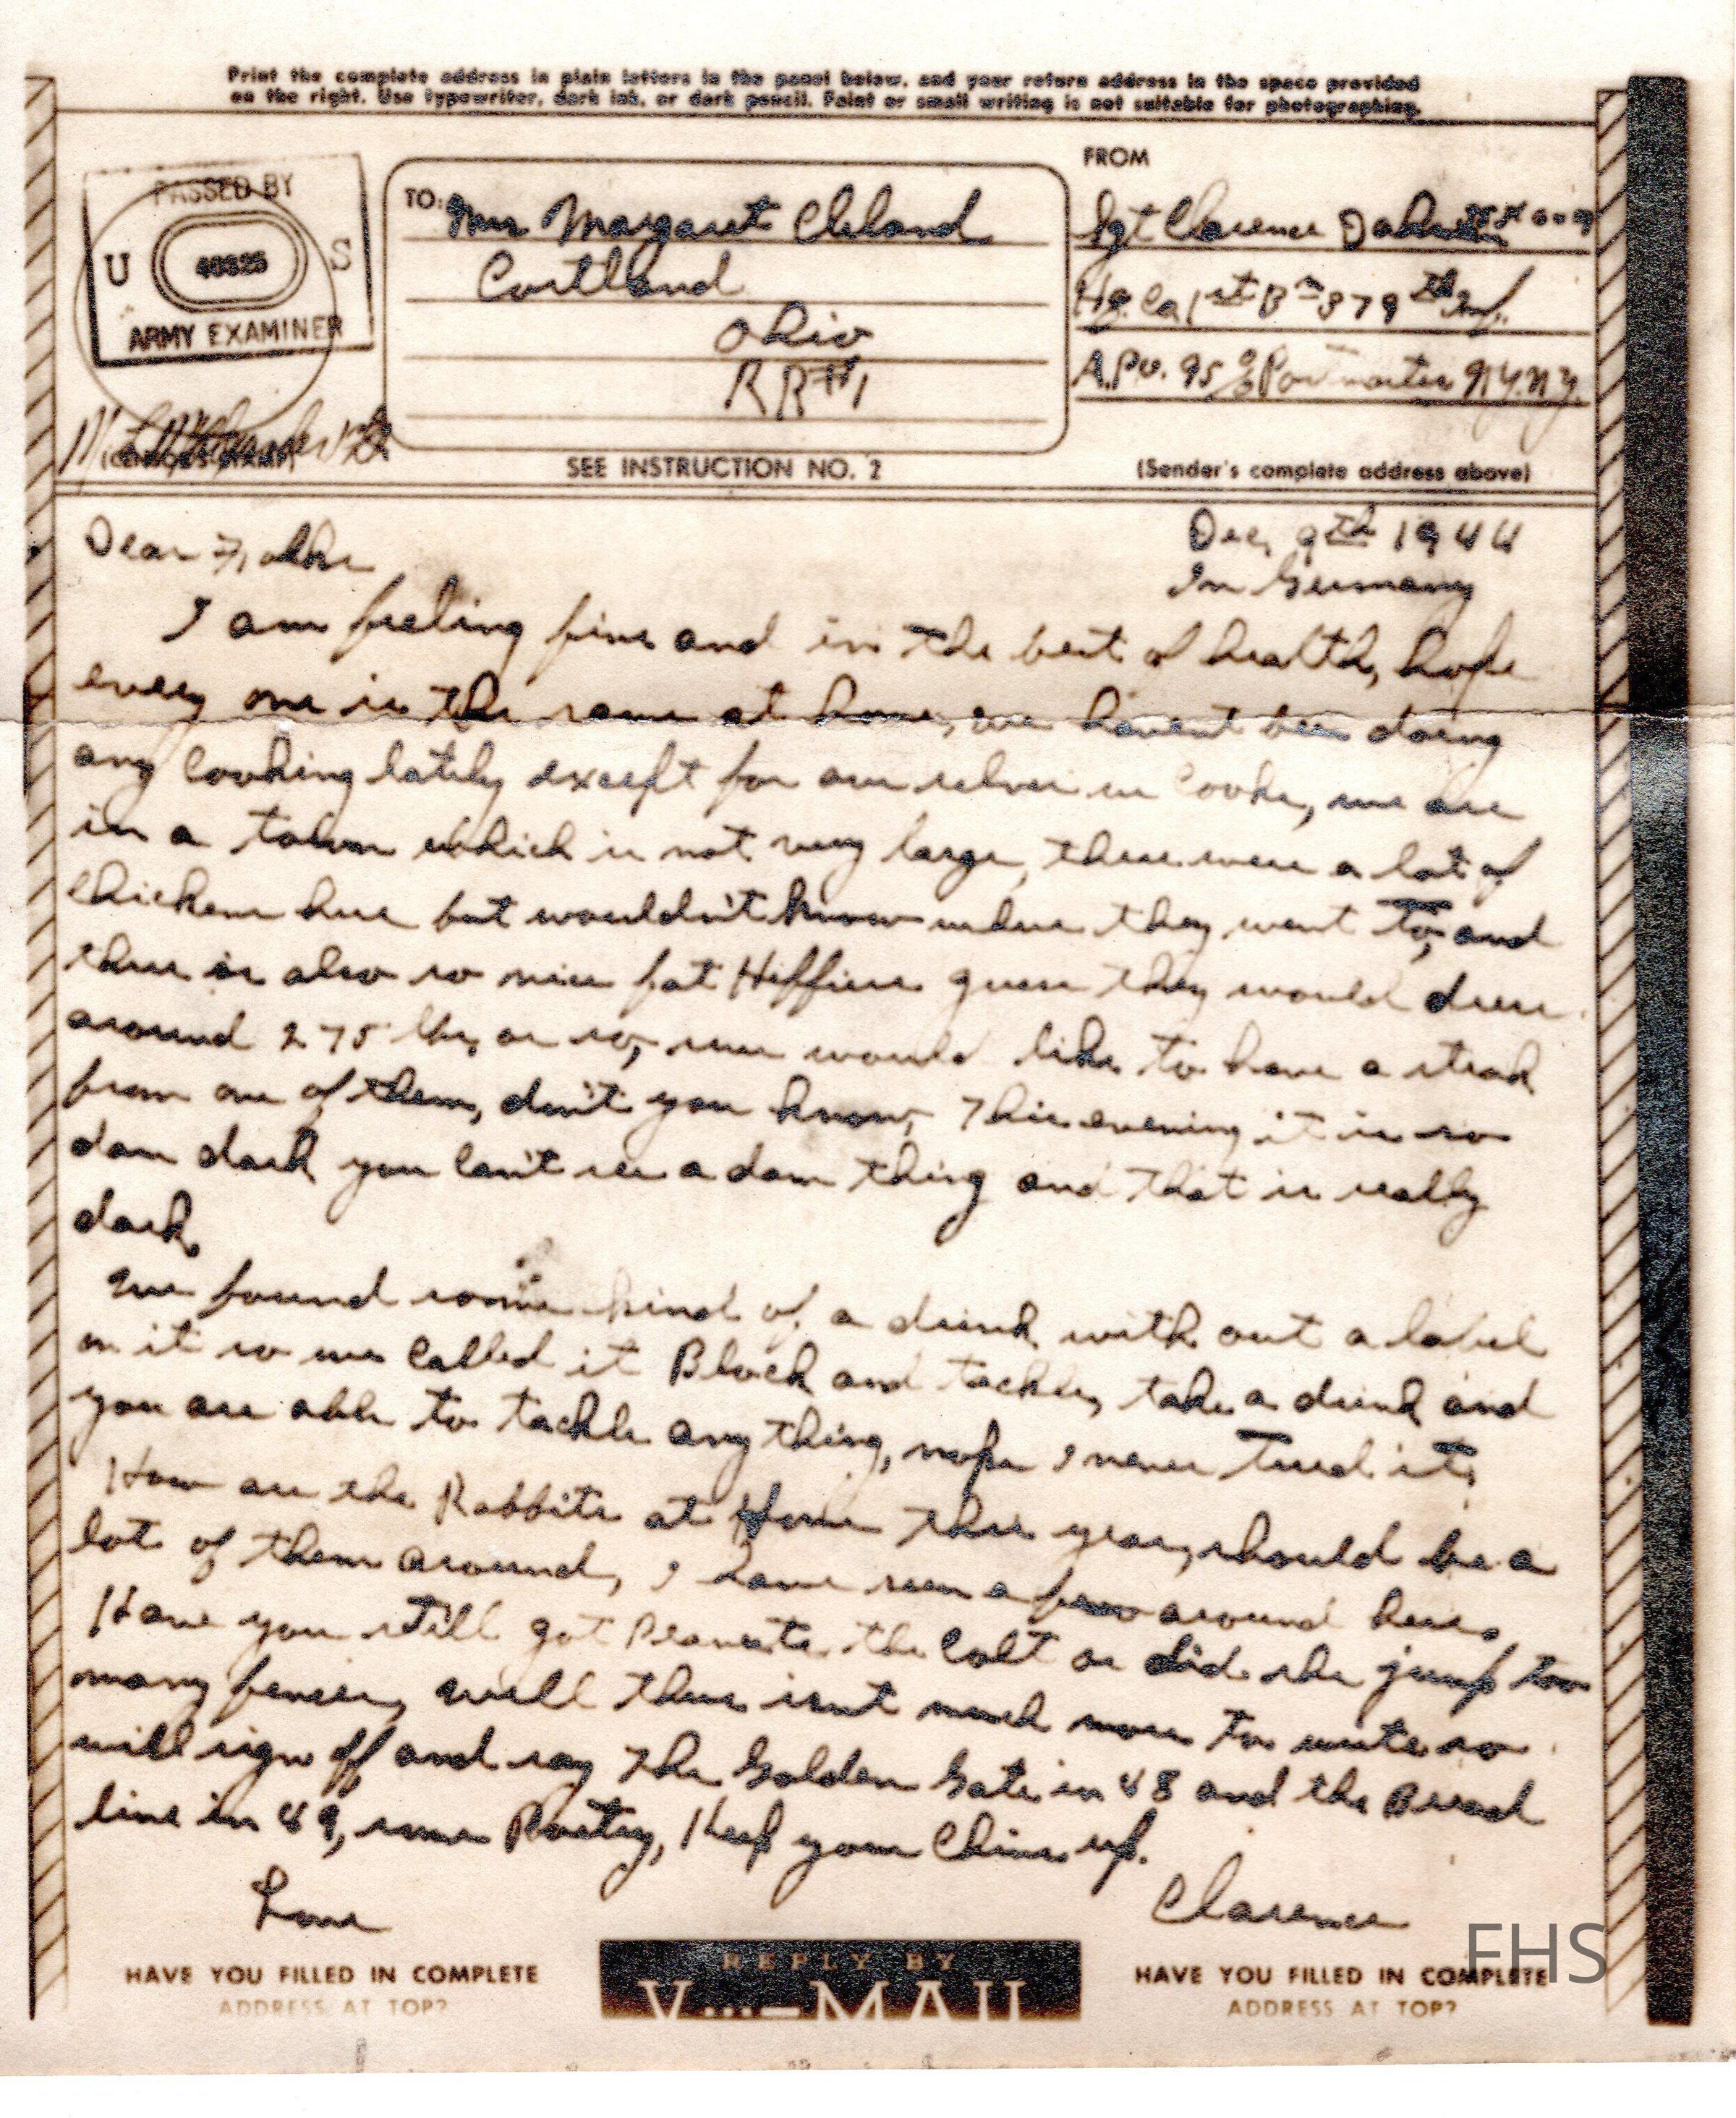 Print the complete address in plain letters in the panel below, and your return address in the space provided
on the right. Use typewriter, dark ink, or dark pencil. Faint or small writing is not suitable for photographing.
FROM
PASSED BY
U S
40325
ARMY EXAMINER
TO: Mrs Margaret Cleland
Cortland
Ohio
RR#1
Sgt Clarence
Hq. Co 1st Bn 379th Inf.
A.P.O. 95 % Postmaster N.Y. N.Y.
(CENSOR'S STAMP)
SEE INSTRUCTION NO. 2
(Sender's complete address above)
Dec, 9th 1944
In Germany
Dear Folks
I am feeling fine and in the best of health, hope
every one is the same at home, we havent been doing
any cooking lately except for our selves we cooks, we are
in a town which is not very large, there were a lot of
chickens here but wouldn't know where they went to, and
there is also so nice fat Hiffers guess they would dress
around 275 lbs, or so, sure would like to have a steak
from one of them, don't you know, This evening it is so
dam dark you can't see a dam thing and that is really
dark.
We found some kind of a drink with out a label
on it so we called it Block and tackle, take a drink and
you are able to tackle any thing, nope I never tried it,
How are the Rabbits at Home this year, should be a
lot of them around, I have seen a few around here.
Have you still got Peanuts the Colt or did she jump too
many fences, well there isnt much more to write so
will sign off and say the Golden Gate in 48 and the Bread
line in 49, some Poetry, Keep your Chins up.
Love
Clarence
FHS
HAVE YOU FILLED IN COMPLETE
ADDRESS AT TOP?
REPLY BY
V...–MAIL
HAVE YOU FILLED IN COMPLETE
ADDRESS AT TOP?